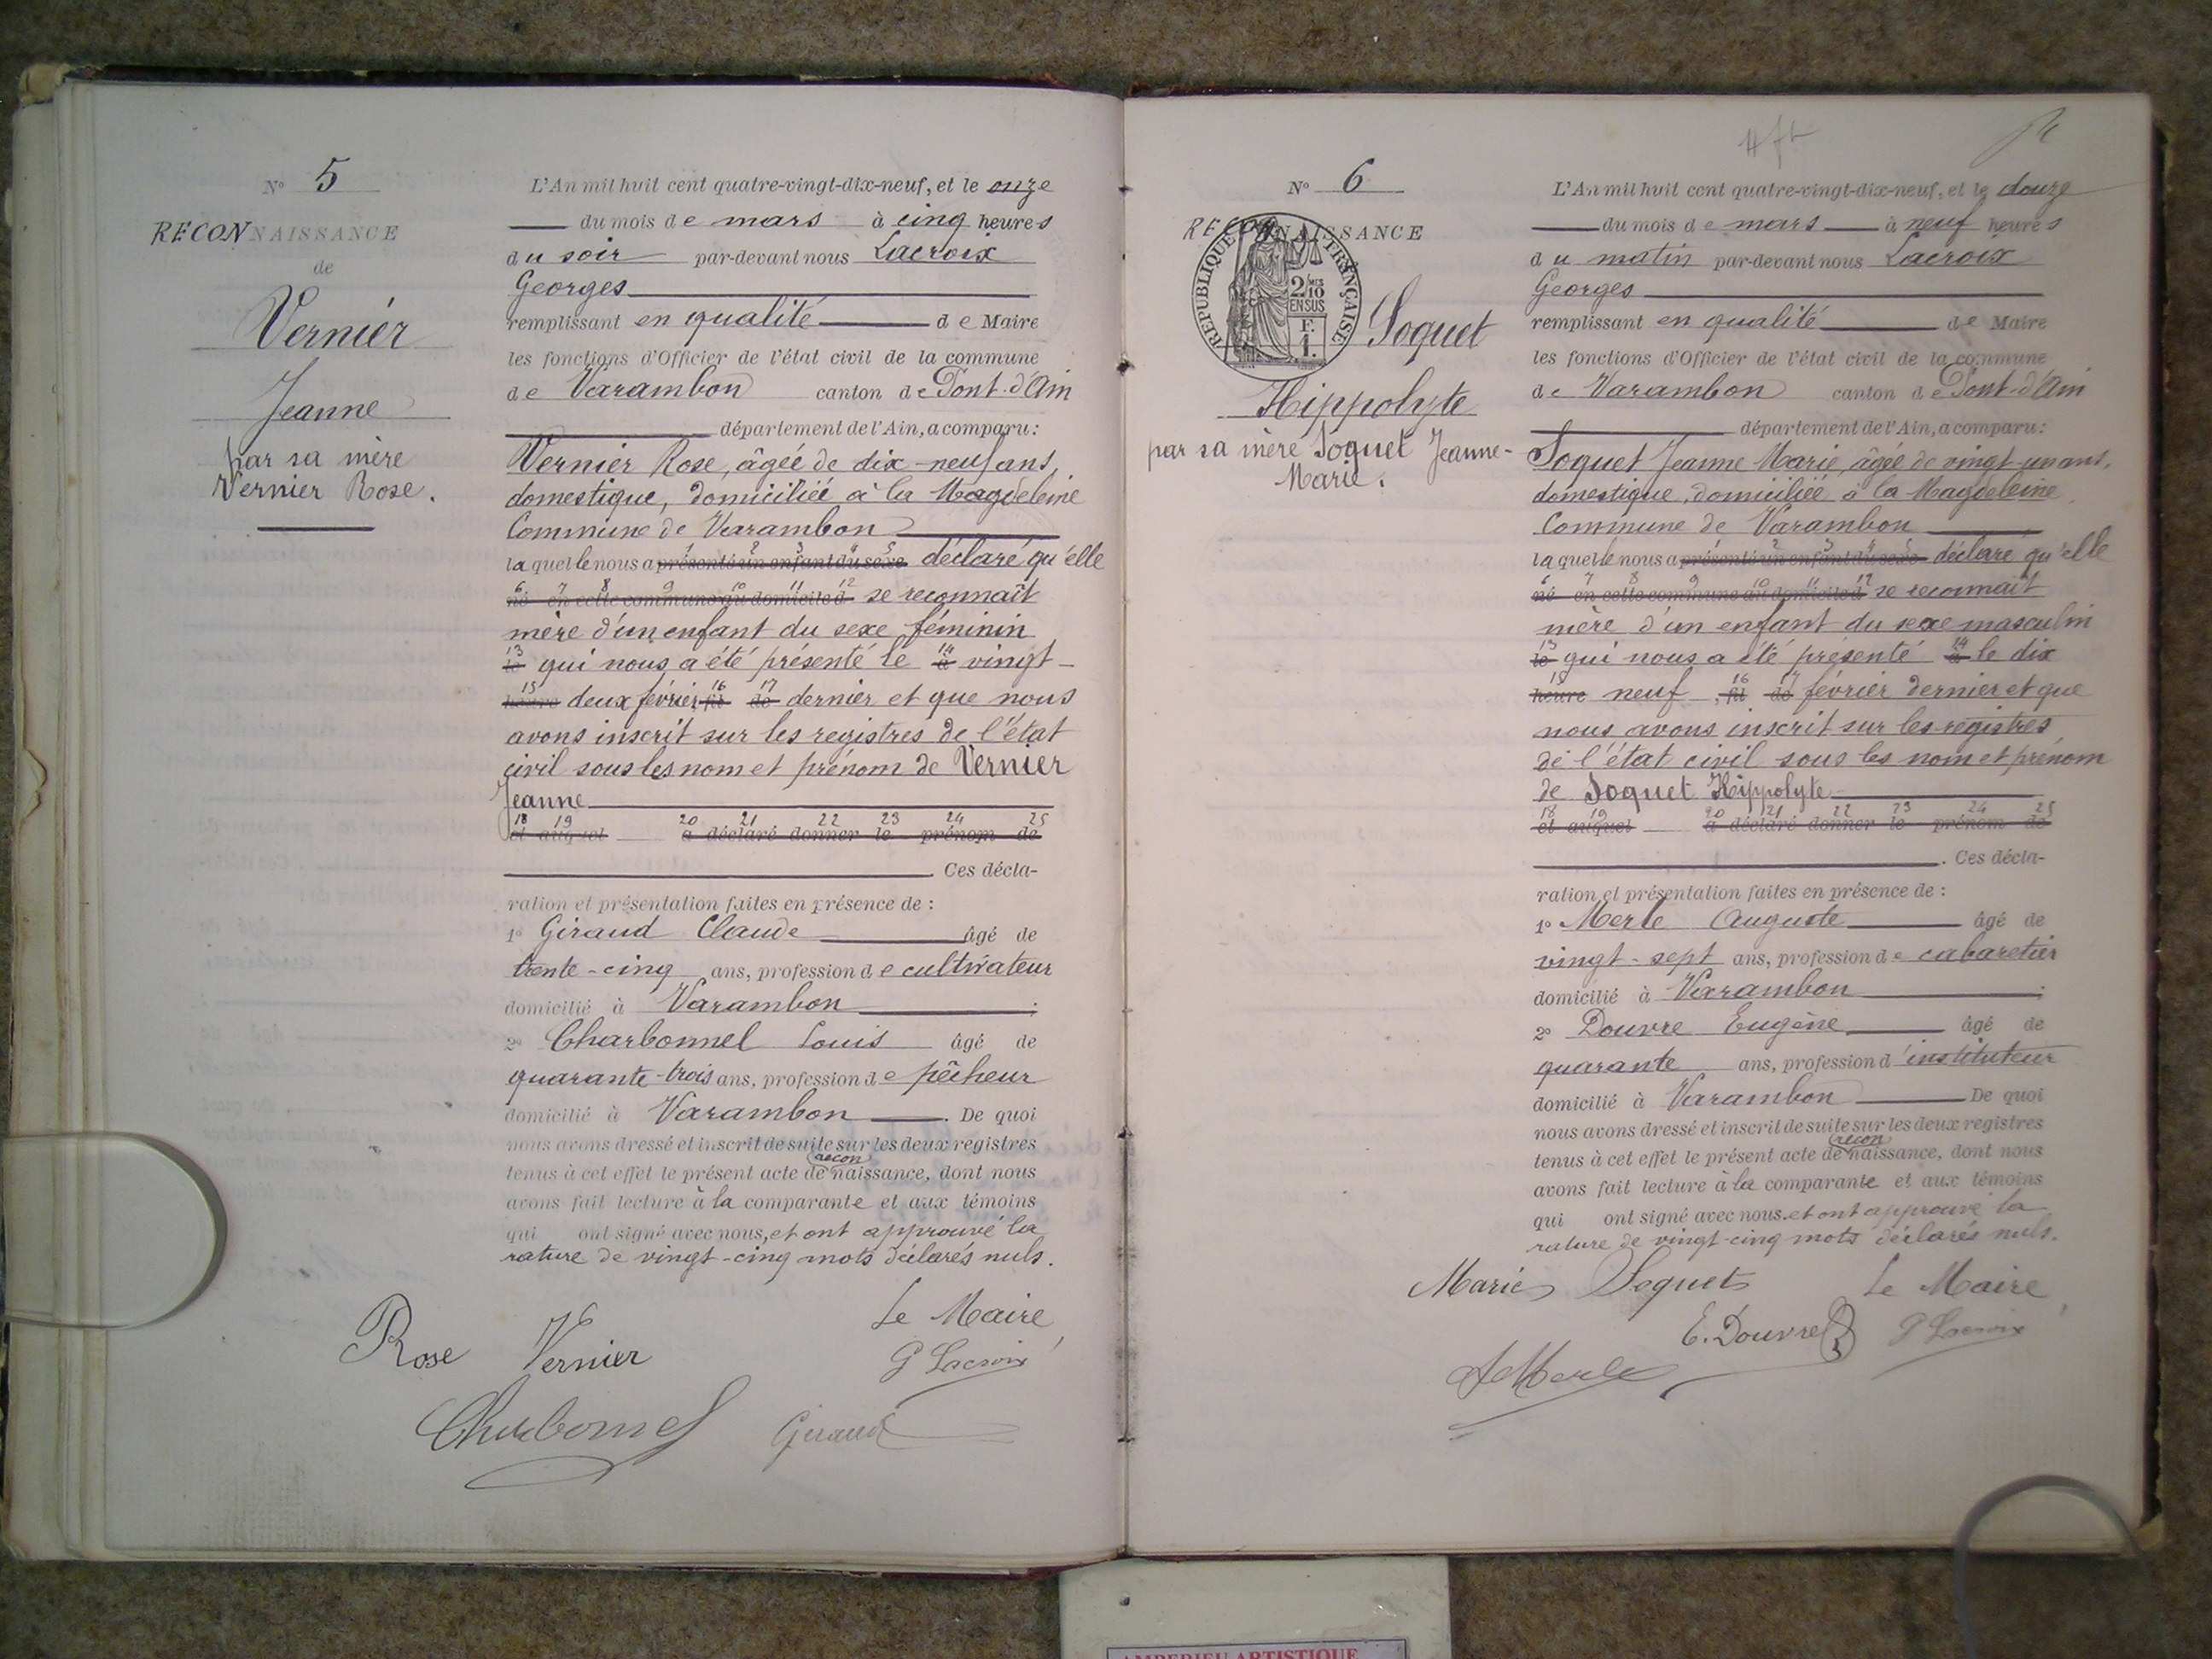 N° 5
RECONNAISSANCE
de
Vernier
Jeanne
par sa mère
Vernier Rose.
L'An mil huit cent quatre-vingt-dix-neuf, et le onze
du mois de mars à cinq heures
du soir par-devant nous Lacroix
Georges
remplissant en qualité de Maire
les fonctions d'Officier de l'état civil de la commune
de Varambon canton de Pont-d'Ain
département de l'Ain, a comparu :
Vernier Rose, âgée de dix-neuf ans,
domestique, domiciliée à la Magdeleine
Commune de Varambon
1 2 3 4 5
laquelle nous a présenté un enfant du sexe déclaré qu'elle
6 7 8 9 10 11 12
né en cette commune au domicile d se reconnaît
mère d'un enfant du sexe féminin
13 14
le qui nous a été présenté le à vingt-
15 16 17
heure deux février fil de dernier et que nous
avons inscrit sur les registres de l'état
civil sous les nom et prénom de Vernier
Jeanne
18 19 20 21 22 23 24 25
et auquel a déclaré donner le prénom de
Ces décla-
ration et présentation faites en présence de :
1° Giraud Claude âgé de
trente-cinq ans, profession de cultivateur
domicilié à Varambon ;
2° Charbonnel Louis âgé de
quarante-trois ans, profession de pêcheur
domicilié à Varambon . De quoi
nous avons dressé et inscrit de suite sur les deux registres
recon
tenus à cet effet le présent acte de naissance, dont nous
avons fait lecture à la comparante et aux témoins
qui ont signé avec nous, et ont approuvé la
rature de vingt-cinq mots déclarés nuls.
Le Maire,
Rose Vernier G Lacroix
Charbonnel Giraud
N° 6
RECONNAISSANCE
REPUBLIQUE FRANÇAISE
2/10 MES
EN SUS
F.
1.
Soquet
Hippolyte
par sa mère Soquet Jeanne-
Marie.
L'An mil huit cent quatre-vingt-dix-neuf, et le douze
du mois de mars à neuf heures
du matin par-devant nous Lacroix
Georges
remplissant en qualité de Maire
les fonctions d'Officier de l'état civil de la commune
de Varambon canton de Pont-d'Ain
département de l'Ain, a comparu :
Soquet Jeanne Marie, âgée de vingt-un ans,
domestique, domiciliée à la Magdeleine
Commune de Varambon
2 3 4 5
laquelle nous a présenté un enfant du sexe déclaré qu'elle
6 7 8 9 10 11 12
né en cette commune au domicile d se reconnaît
mère d'un enfant du sexe masculin
13 14
le qui nous a été présenté à le dix
15 16 17
heure neuf fil de février dernier et que
nous avons inscrit sur les registres
de l'état civil sous les nom et prénom
de Soquet Hippolyte
18 19 20 21 22 23 24 25
et auquel a déclaré donner le prénom de
. Ces décla-
ration et présentation faites en présence de :
1° Merle Auguste âgé de
vingt-sept ans, profession de cabaretier
domicilié à Varambon ;
2° Douvre Eugène âgé de
quarante ans, profession d'instituteur
domicilié à Varambon De quoi
nous avons dressé et inscrit de suite sur les deux registres
recon
tenus à cet effet le présent acte de naissance, dont nous
avons fait lecture à la comparante et aux témoins
qui ont signé avec nous. et ont approuvé la
rature de vingt-cinq mots déclarés nuls.
Marie Soquet Le Maire,
E. Douvre G Lacroix
A Merle
AMBERIEU ARTISTIQUE